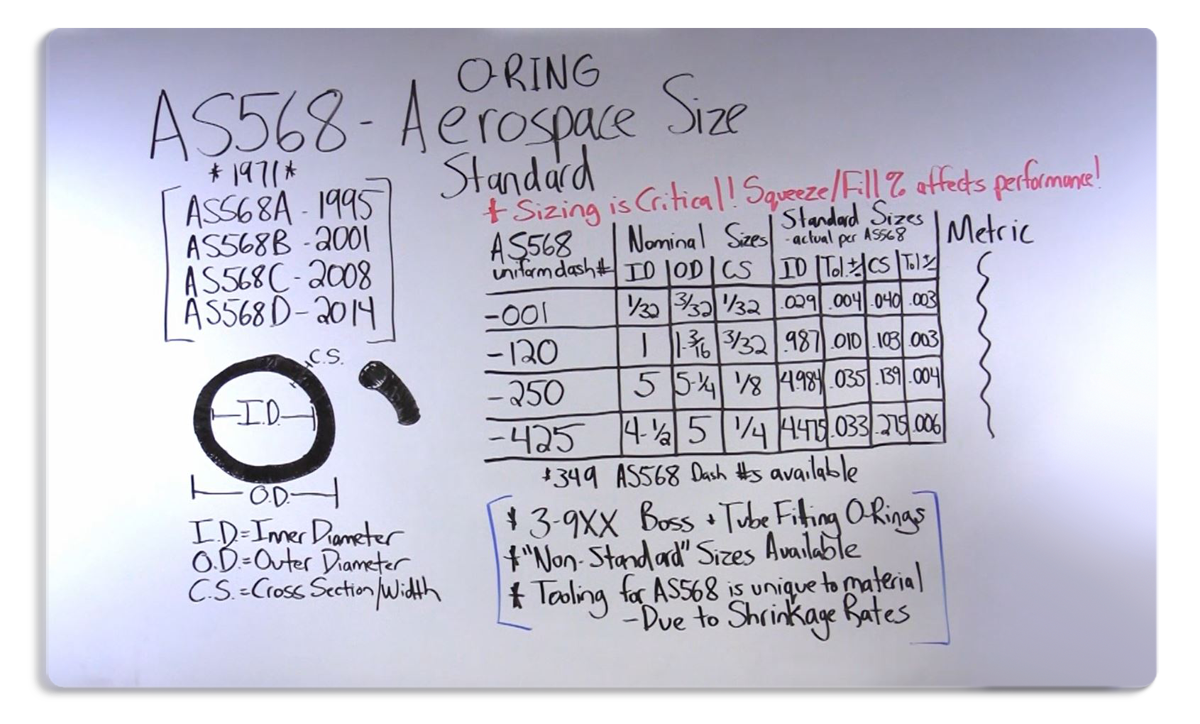 O-RING
AS568 - Aerospace Size
Standard
* 1971 *
AS568A - 1995
AS568B - 2001
AS568C - 2008
AS568D - 2014
C.S.
I.D.
O.D.
I.D.=Inner Diameter
O.D.=Outer Diameter
C.S.=Cross Section/Width
* Sizing is Critical! Squeeze/Fill % affects performance!
AS568 uniform dash # | Nominal Sizes | Standard Sizes - actual per AS568 | Metric
ID | OD | CS | ID | Tol ± | CS | Tol ±
-001 | 1/32 | 3/32 | 1/32 | .029 | .004 | .040 | .003
-120 | 1 | 1-3/16 | 3/32 | .987 | .010 | .103 | .003
-250 | 5 | 5-1/4 | 1/8 | 4.984 | .035 | .139 | .004
-425 | 4-1/2 | 5 | 1/4 | 4.475 | .033 | .275 | .006
* 349 AS568 Dash #s available
* 3-9XX Boss + Tube Fitting O-Rings
* "Non-Standard" Sizes Available
* Tooling for AS568 is unique to material
- Due to Shrinkage Rates